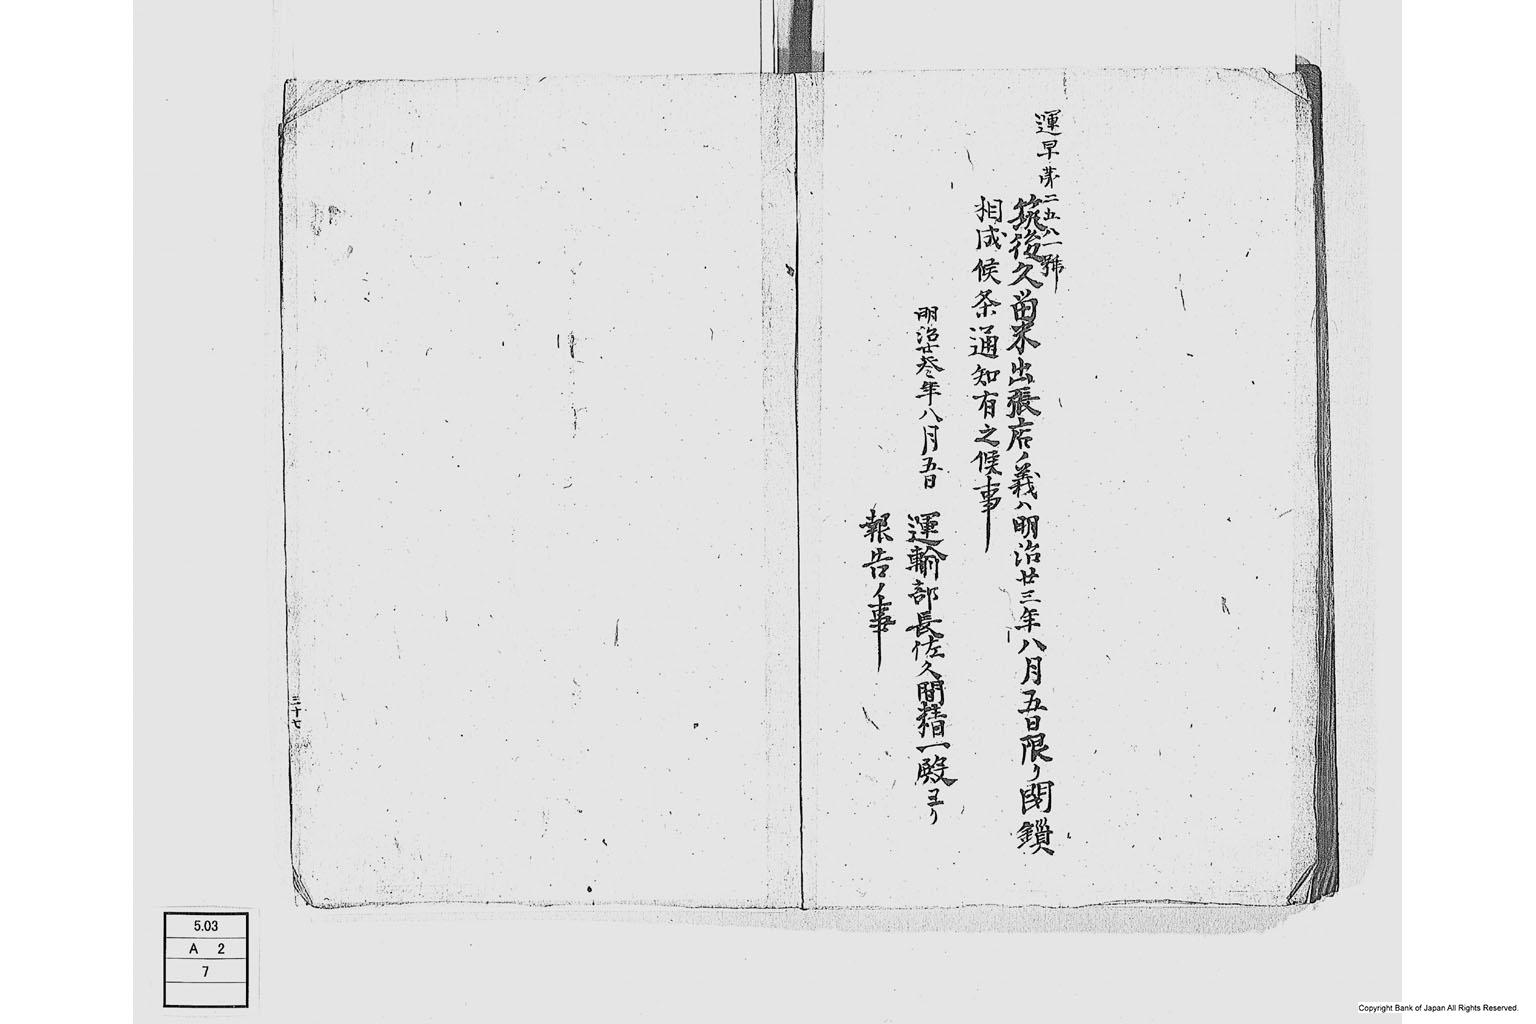 運早第二五八一號
筑後久留米出張店ノ義ハ明治廿三年八月五日限リ閉鎖
相成候条通知有之候事
明治廿叄年八月五日
運輸部長佐久間精一殿ヨリ
報告ノ事
三十七
5.03
A 2
7
Copyright Bank of Japan All Rights Reserved.